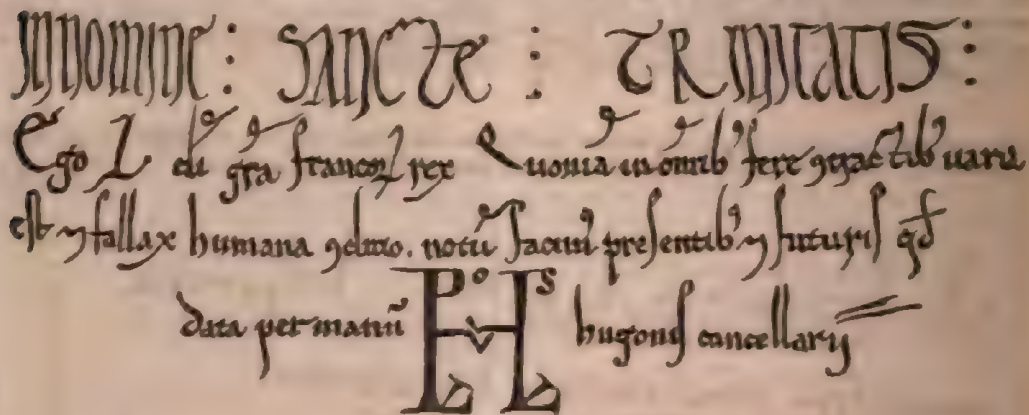 INNOMINE : SANCTE : TRINITATIS :
Ego L dī gr̄a francoꝝ rex Quoniā in omībꝰ fere ꝯtractibꝰ uaria
est ⁊ fallax humana ꝯditio. notū facimꝰ presentibꝰ ⁊ futuris qd̄
data per manū hugonis cancellarij